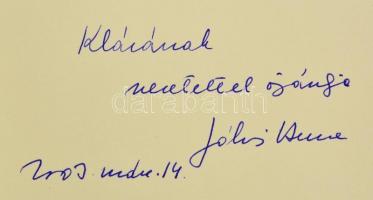 Klárának
szeretettel ajánlja
Jókai Anna
2003. márc. 14.